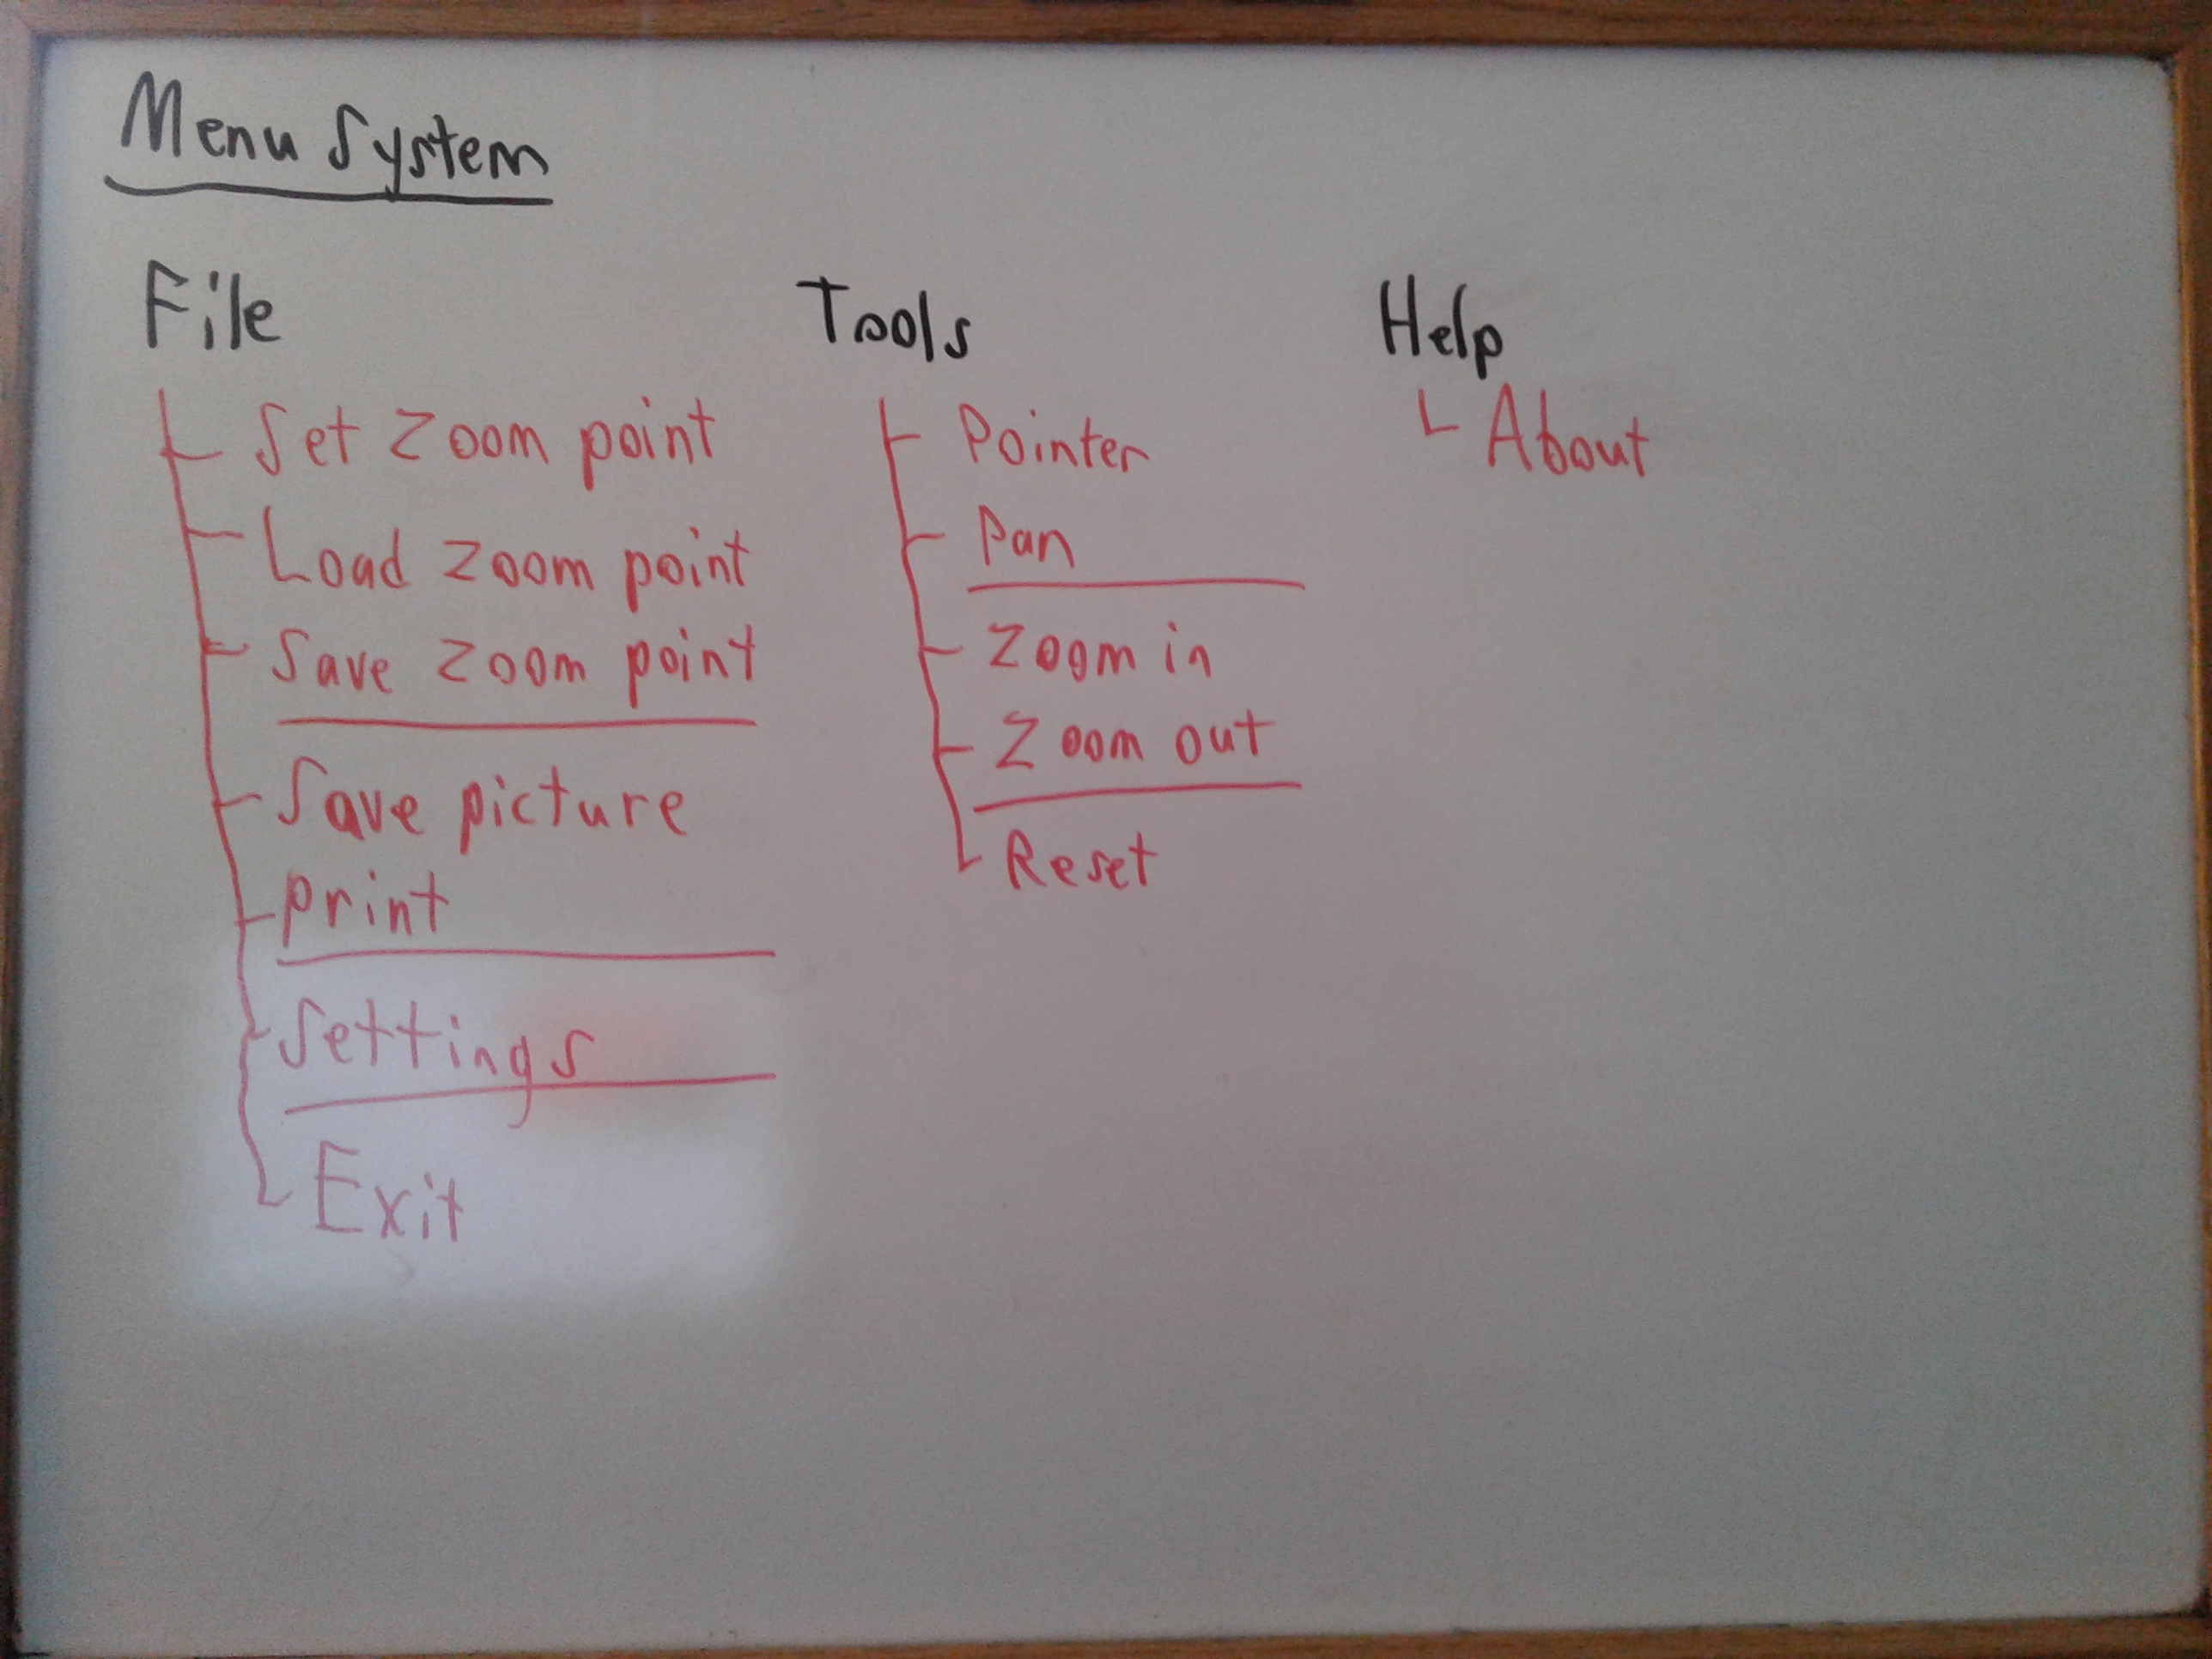 Menu System
File
Set Zoom point
Load zoom point
Save zoom point
Save picture
print
Settings
Exit
Tools
Pointer
Pan
Zoom in
Zoom out
Reset
Help
About